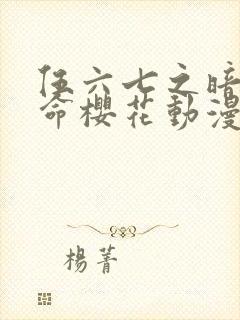 伍六七之暗
命櫻花動漫
楊菁